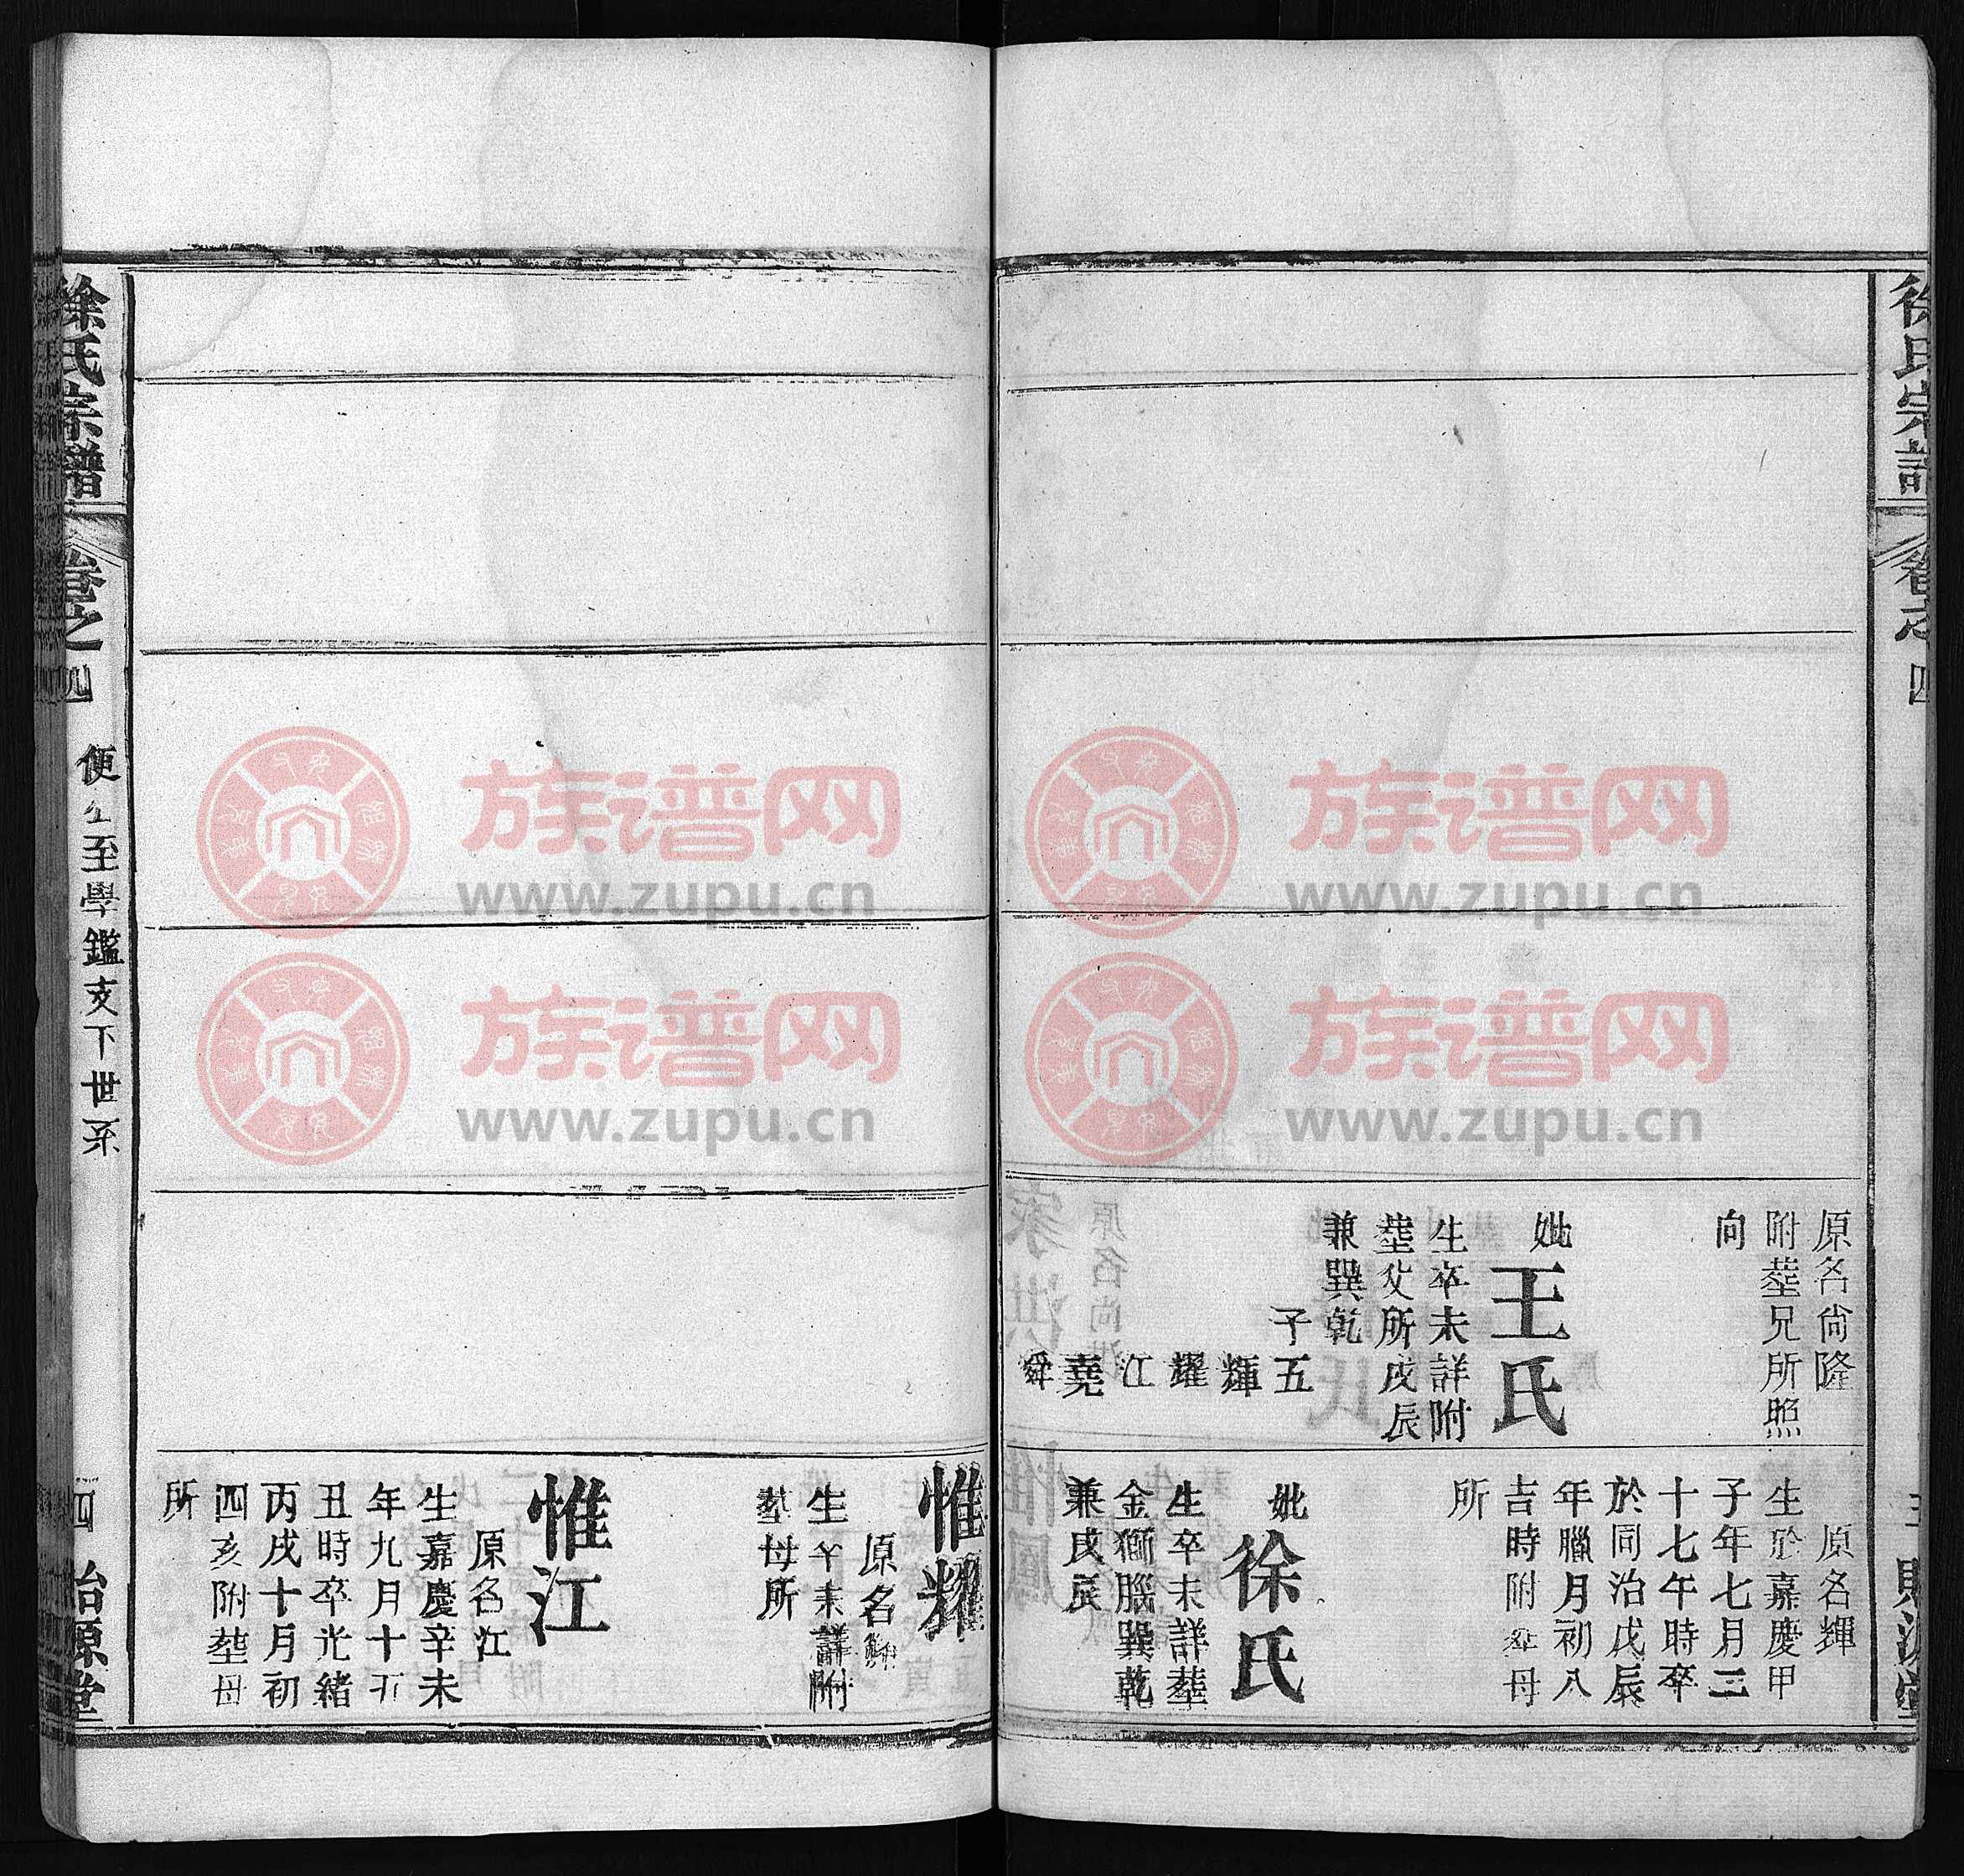 徐氏宗譜
卷之四
原名尙隆
附塟兄所照
向
妣王氏
生卒未詳附
塟父所戌辰
兼巽乾
子五
輝
耀
江
堯
舜
原名輝
生於嘉慶甲
子年七月三
十七午時卒
於同治戊辰
年臘月初八
吉時附塟母
所
妣徐氏
生卒未詳塟
金獅腦巽乾
兼戌辰
惟耀
原名
生卒未詳附
塟母所
惟江
原名江
生嘉慶辛未
年九月十五
丑時卒光緒
丙戌十月初
四亥附塟母
所
徐氏宗譜
卷之四
使公至學鑑支下世系
四
貽源堂
族谱网
www.zupu.cn
族谱网
www.zupu.cn
族谱网
www.zupu.cn
族谱网
www.zupu.cn